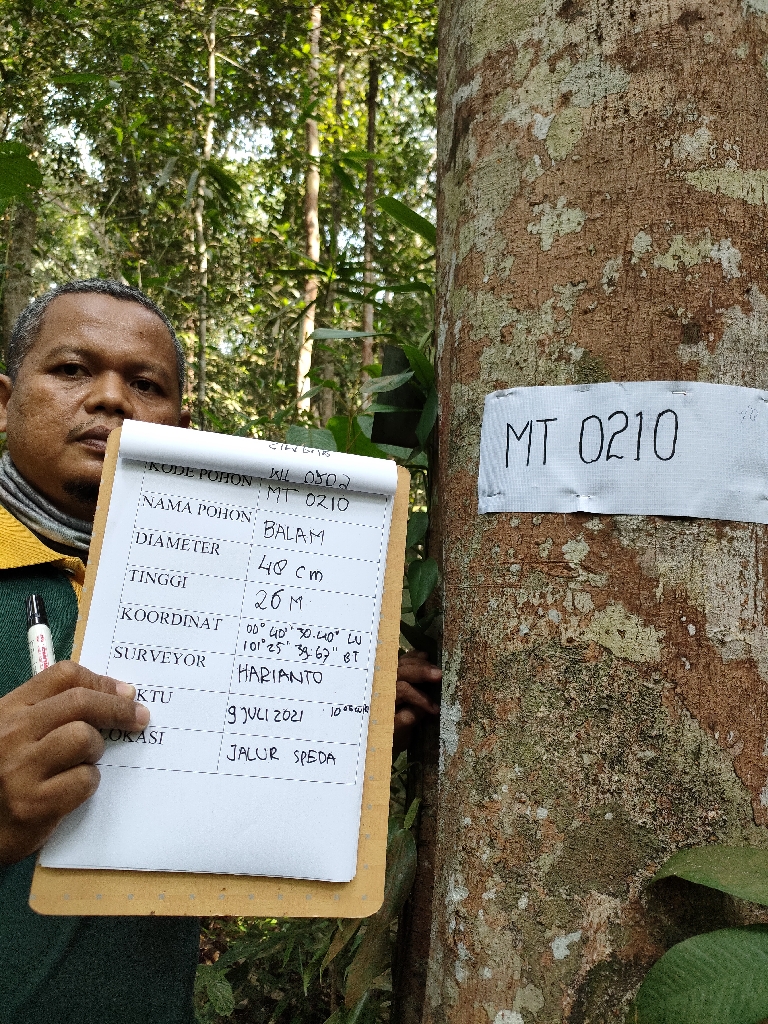 KODE POHON WL 0502
MT 0210
NAMA POHON BALAM
DIAMETER 48 cm
TINGGI 26 M
KOORDINAT 00° 40' 30.40" LU
101° 25' 39.67" BT
SURVEYOR HARIANTO
KTU 9 JULI 2021
LOKASI JALUR SPEDA
MT 0210